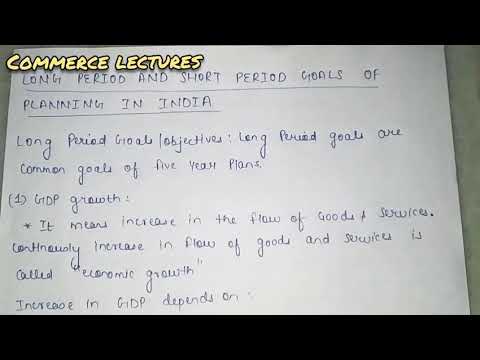 COMMERCE LECTURES
LONG PERIOD AND SHORT PERIOD GOALS OF
PLANNING IN INDIA
Long Period Goals/objectives: Long Period goals are
common goals of five year Plans.
(1) GDP growth:
* It means increase in the flow of Goods & Services.
Continously increase in flow of goods and services is
called "economic growth"
Increase in GDP depends on: